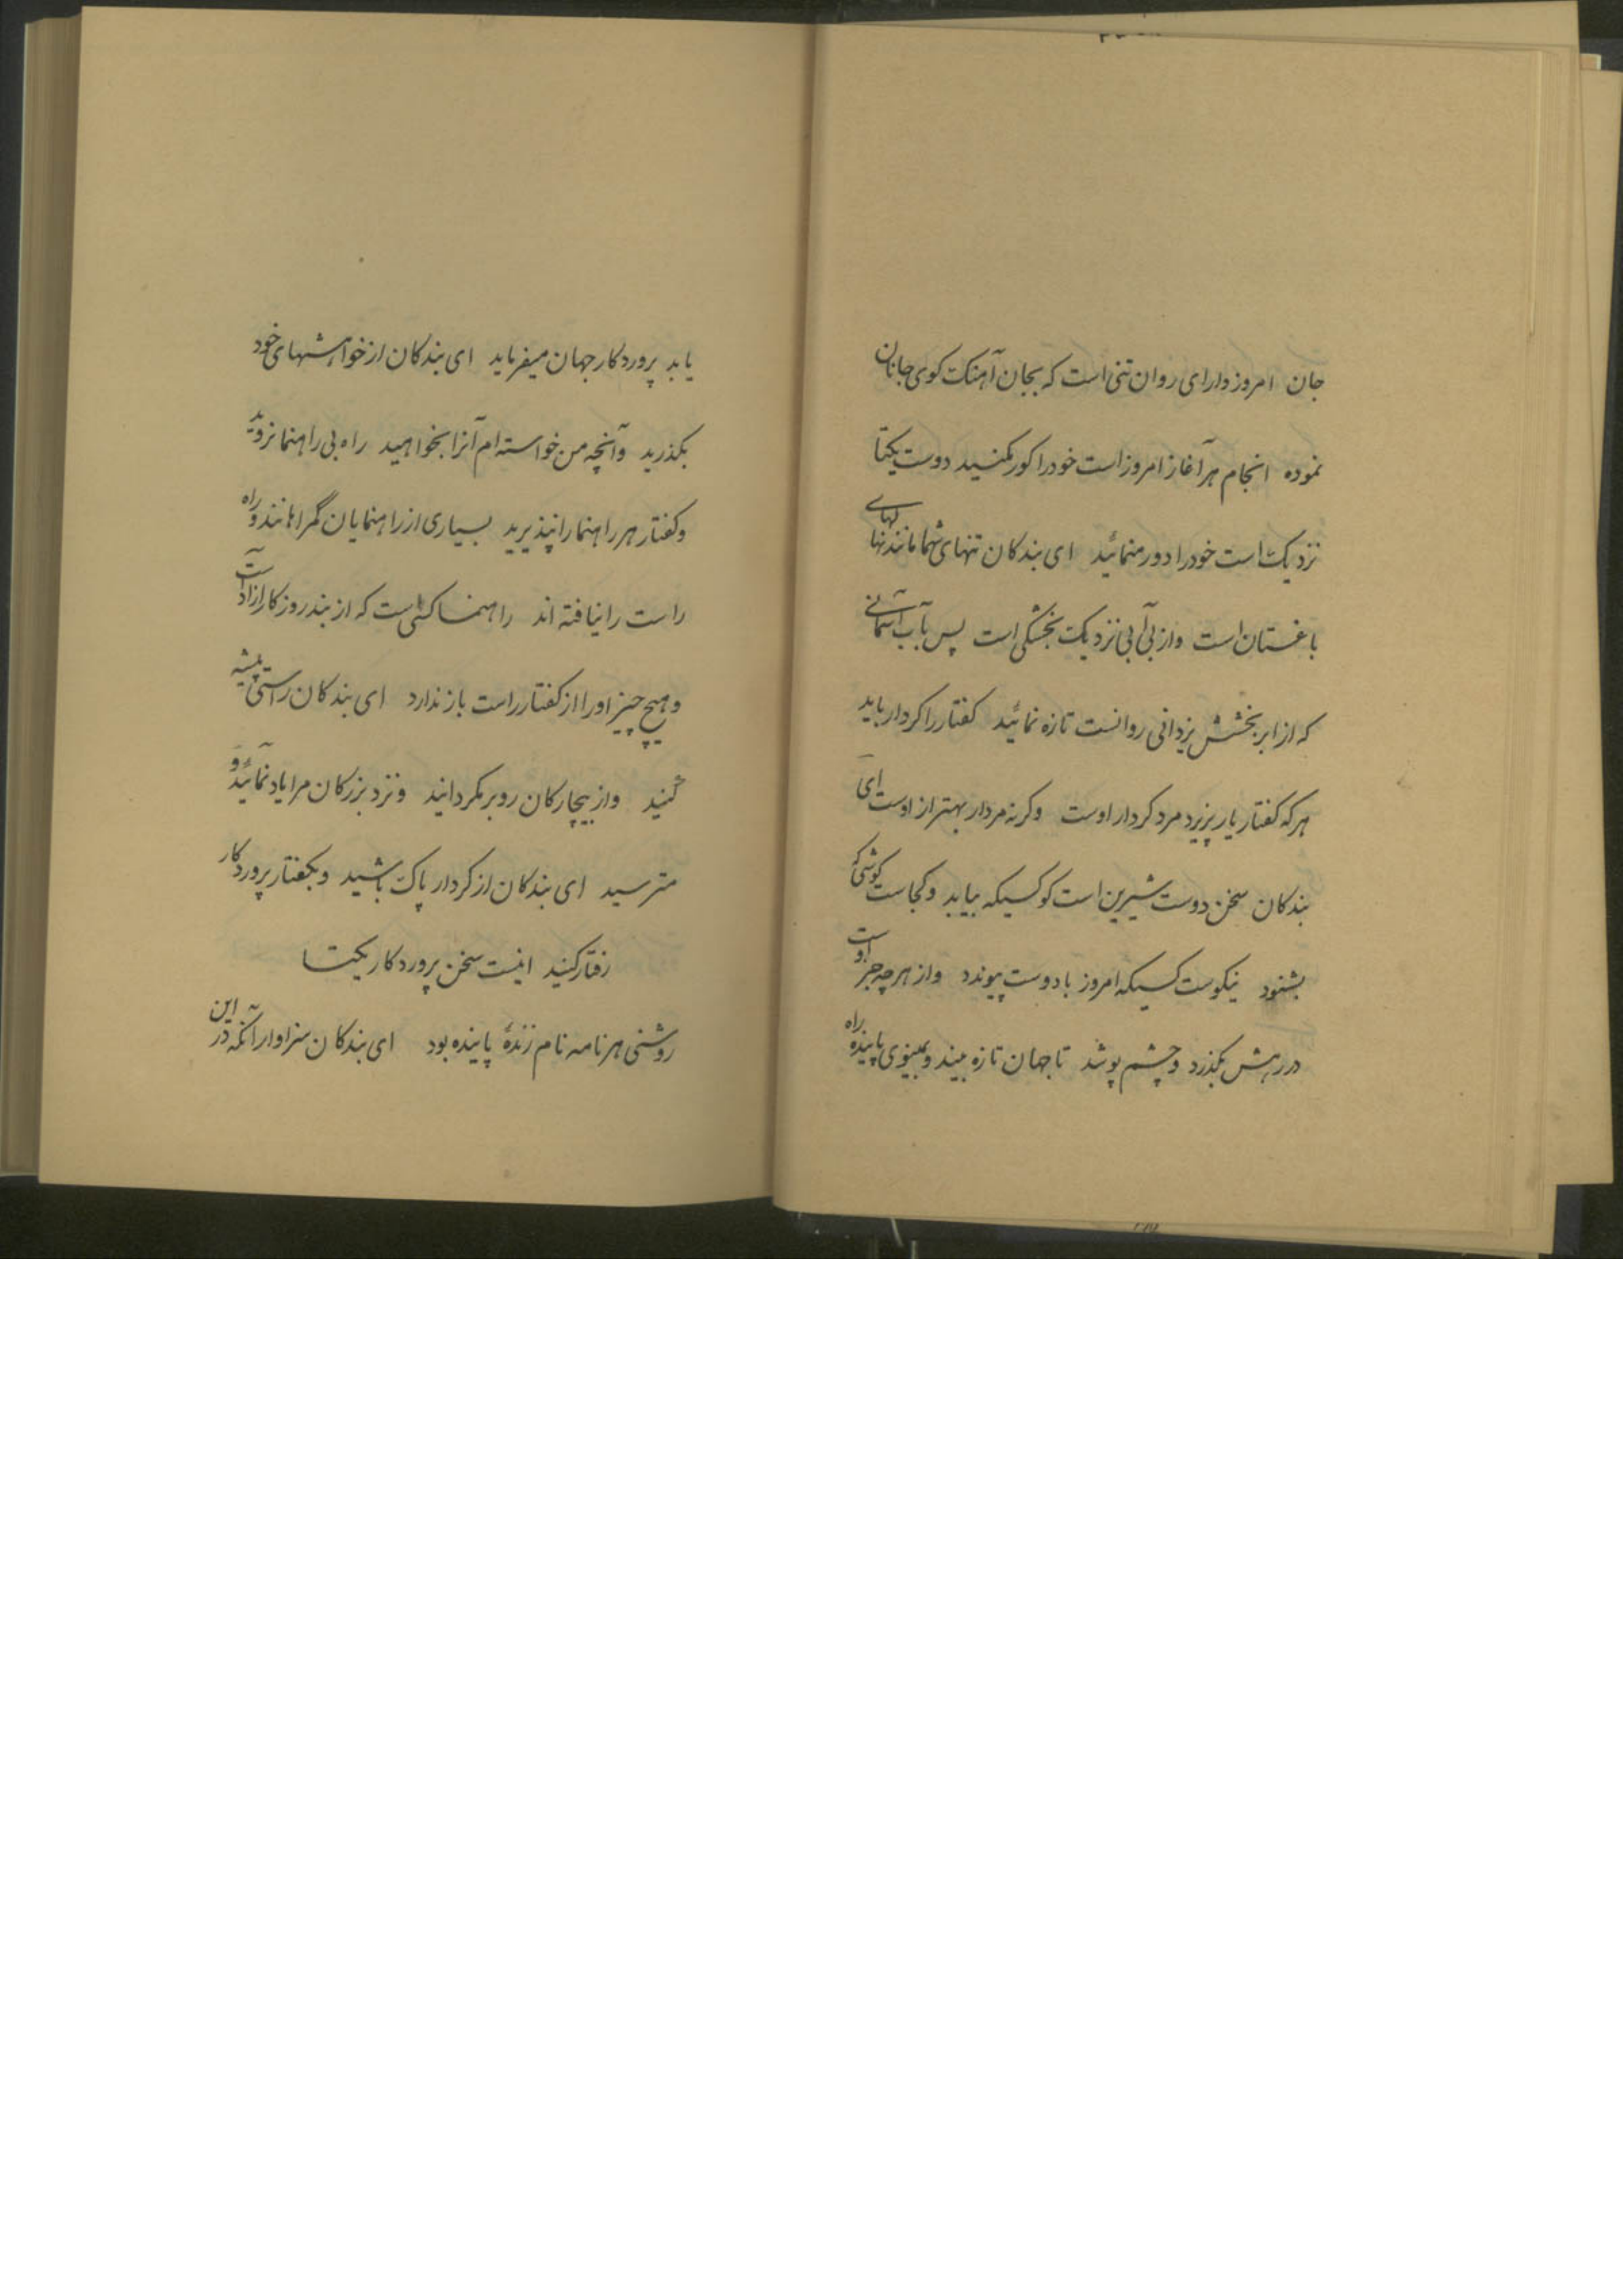 جان امروز دارای روان تنی است که بجان آهنک کوی جانان
نموده انجام هر آغاز امروز است خود را کور مکنید دوست یکتا
نزدیک است خود را دور منمائید ای بندکان تنهای شما مانند نهالهای
باغستان است و از بی آبی نزدیک بخشکی است پس بآب آسمانی
که از ابر بخشش یزدانی روانست تازه نمائید کفتار را کردار باید
هر که کفتار پذیرد مرد کردار اوست و کرنه مردار بهتر از اوست ای
بندکان سخن دوست شیرین است کو کسیکه بیابد و کجاست کوشی که
بشنود نیکوست کسیکه امروز با دوست پیوندد و از هر چه جز اوست
در رهش بکذرد و چشم پوشد تا جهان تازه بیند و بمینوی پاینده راه
یابد پروردکار جهان میفرماید ای بندکان از خواهشهای خود
بکذرید و آنچه من خواسته ام آنرا بخواهید راه بی راهنما نروید
و کفتار هر راهنما را نپذیرید بسیاری از راهنمایان گمراهانند و راه
راست را نیافته اند راهنما کسی است که از بند روزکار آزاد است
و هیچ چیز او را از کفتار راست باز ندارد ای بندکان راستی پیشه
کنید و از بیچارکان رو بر مکردانید و نزد بزرکان مرا یاد نمائید و
مترسید ای بندکان از کردار پاک باشید و بکفتار پروردکار
رفتار کنید اینست سخن پروردکار یکتا
روشنی هر نامه نام زندهٔ پاینده بود ای بندکان سزاوار آنکه در این